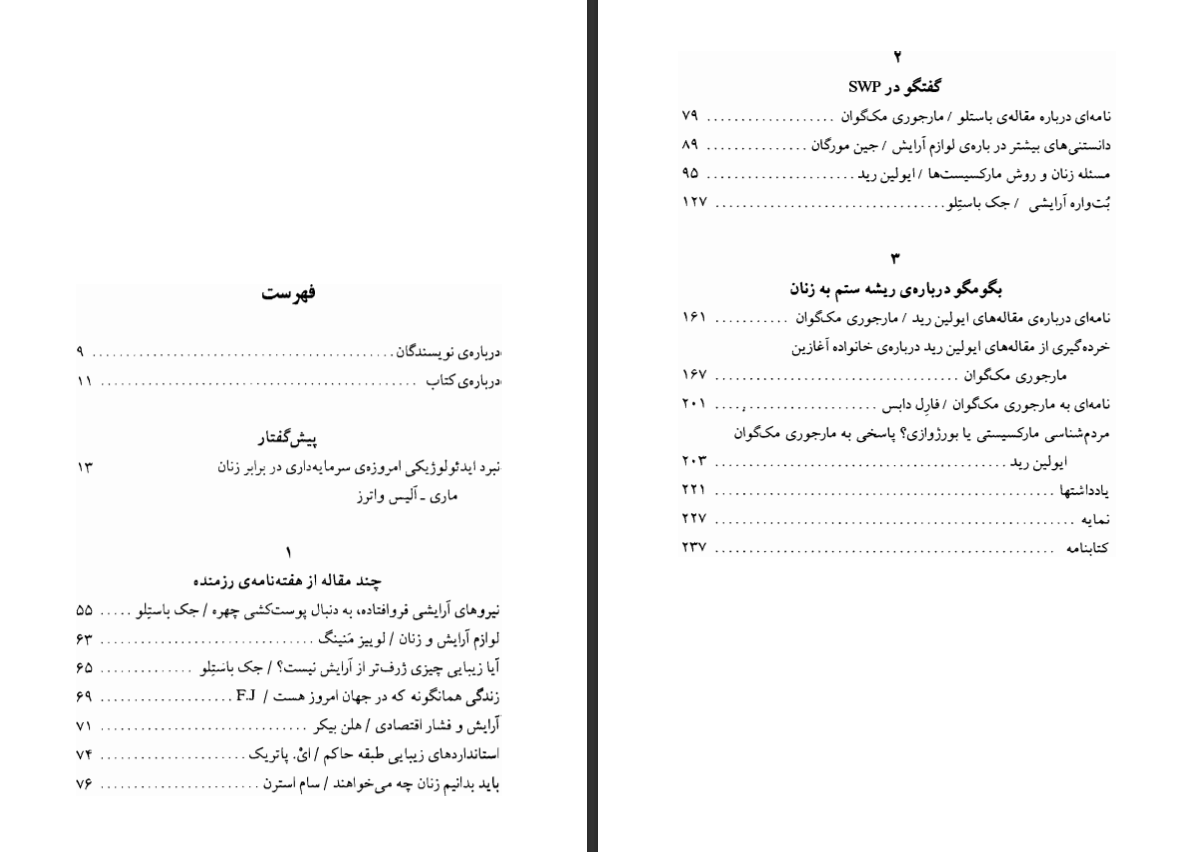 فهرست
درباره‌ی نویسندگان ........ ۹
درباره‌ی کتاب ........ ۱۱
پیش‌گفتار
نبرد ایدئولوژیکی امروزه‌ی سرمایه‌داری در برابر زنان ۱۳
ماری ـ آلیس واترز
۱
چند مقاله از هفته‌نامه‌ی رزمنده
نیروهای آرایشی فروافتاده، به دنبال پوست‌کشی چهره / جک باستِلو ..... ۵۵
لوازم آرایش و زنان / لوییز مَنینگ ........ ۶۳
آیا زیبایی چیزی ژرف‌تر از آرایش نیست؟ / جک باستِلو ........ ۶۵
زندگی همانگونه که در جهان امروز هست / F.J ........ ۶۹
آرایش و فشار اقتصادی / هلن بیکر ........ ۷۱
استانداردهای زیبایی طبقه حاکم / ایْ. پاتریک ........ ۷۴
باید بدانیم زنان چه می‌خواهند / سام استرن ........ ۷۶
۲
گفتگو در SWP
نامه‌ای درباره مقاله‌ی باستلو / مارجوری مک‌گوان ........ ۷۹
دانستنی‌های بیشتر در باره‌ی لوازم آرایش / جین مورگان ........ ۸۹
مسئله زنان و روش مارکسیست‌ها / ایولین رید ........ ۹۵
بُت‌واره آرایشی / جک باستِلو ........ ۱۲۷
۳
بگومگو درباره‌ی ریشه ستم به زنان
نامه‌ای درباره‌ی مقاله‌های ایولین رید / مارجوری مک‌گوان ........ ۱۶۱
خرده‌گیری از مقاله‌های ایولین رید درباره‌ی خانواده آغازین
مارجوری مک‌گوان ........ ۱۶۷
نامه‌ای به مارجوری مک‌گوان / فارِل دابس ........ ۲۰۱
مردم‌شناسی مارکسیستی یا بورژوازی؟ پاسخی به مارجوری مک‌گوان
ایولین رید ........ ۲۰۳
یادداشتها ........ ۲۲۱
نمایه ........ ۲۲۷
کتابنامه ........ ۲۳۷